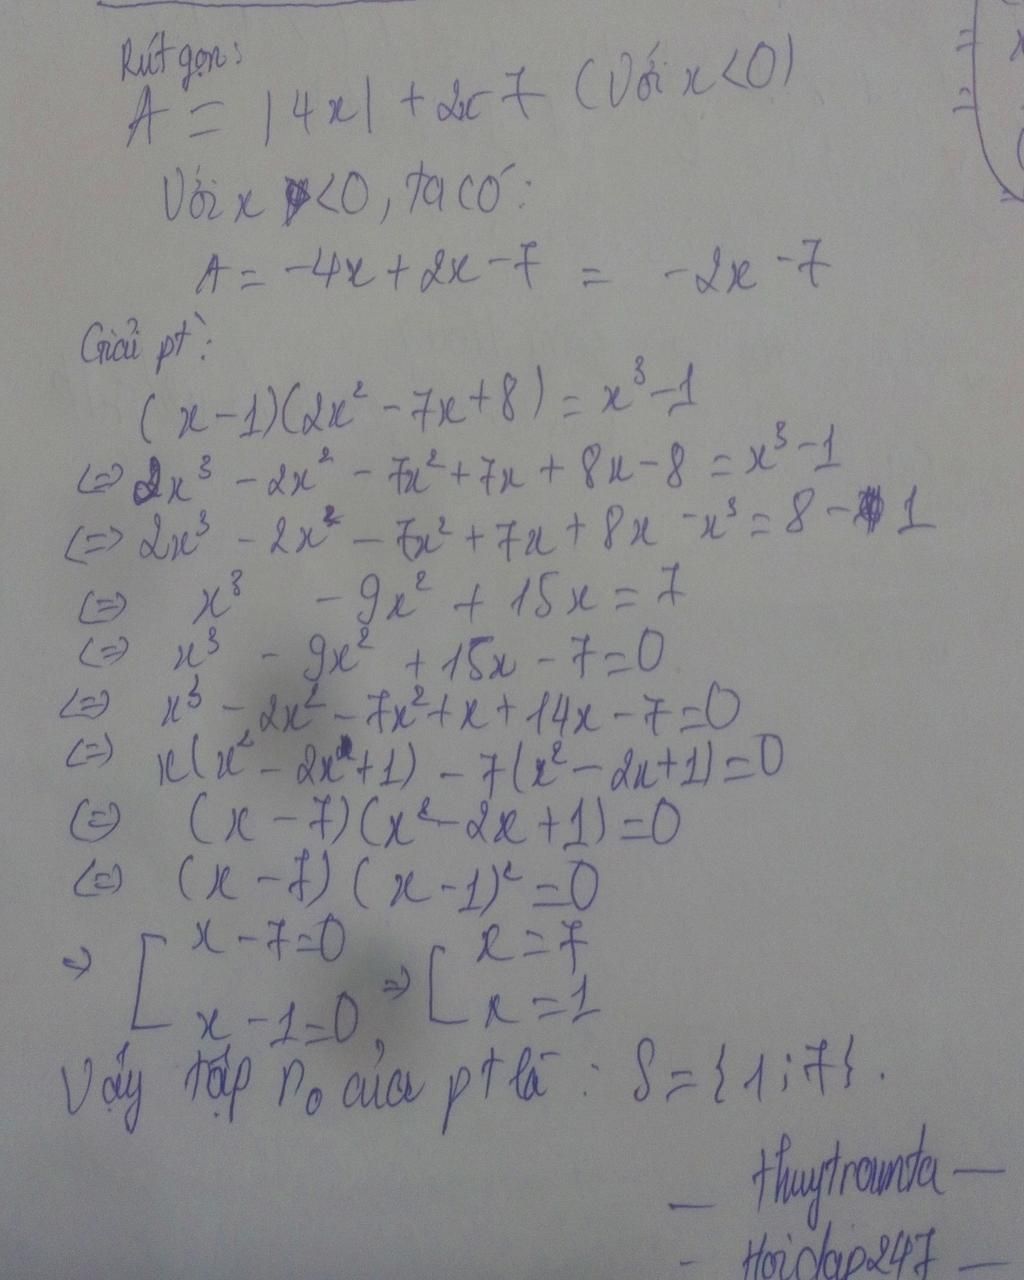 Rút gọn:
A = |4x| + 2x - 7 (Với x < 0)
Với x < 0, ta có:
A = -4x + 2x - 7 = -2x - 7
Giải pt:
(x - 1)(2x² - 7x + 8) = x³ - 1
<=> 2x³ - 2x² - 7x² + 7x + 8x - 8 = x³ - 1
<=> 2x³ - 2x² - 7x² + 7x + 8x - x³ = 8 - 1
<=> x³ - 9x² + 15x = 7
<=> x³ - 9x² + 15x - 7 = 0
<=> x³ - 2x² - 7x² + x + 14x - 7 = 0
<=> x(x² - 2x + 1) - 7(x² - 2x + 1) = 0
<=> (x - 7)(x² - 2x + 1) = 0
<=> (x - 7)(x - 1)² = 0
=> [ x - 7 = 0 => [ x = 7
x - 1 = 0 x = 1
Vậy tập n₀ của pt là: S = {1; 7}.
— thuytrounta —
- Hoidap247 —